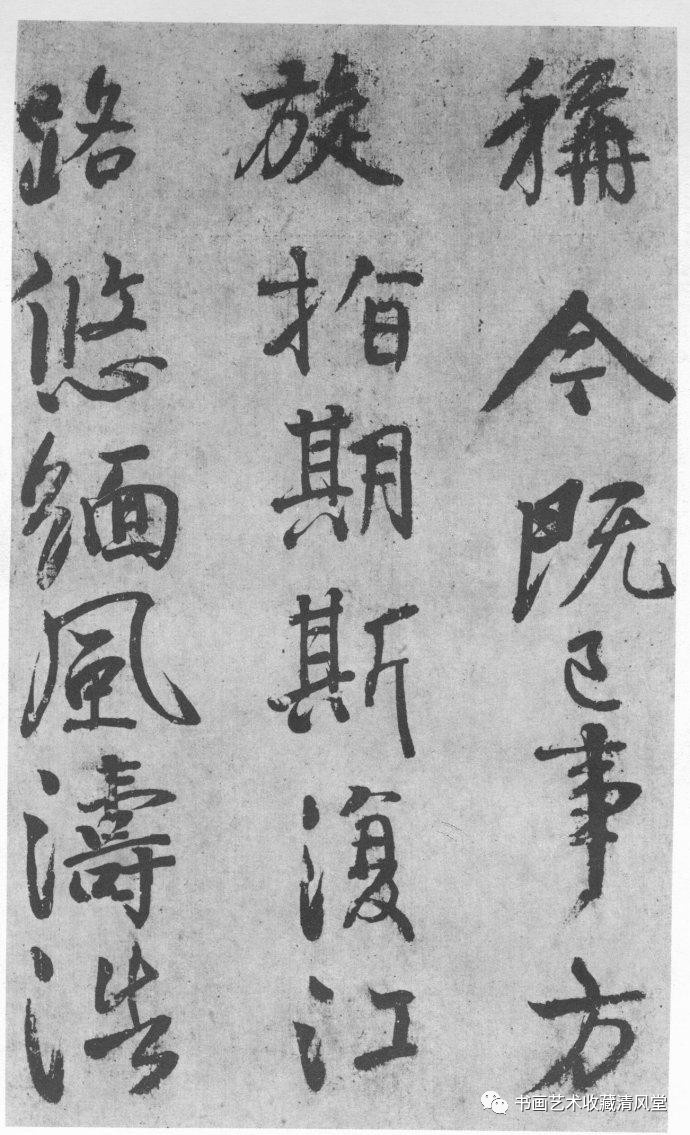 稱今既已事方
旋指期斯復江
路悠緬風濤浩
书画艺术收藏清风堂